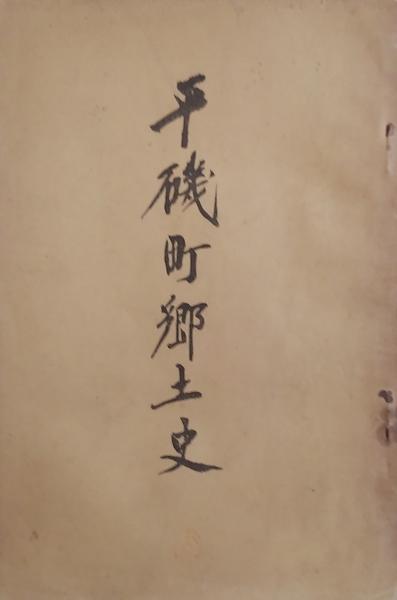 平磯町郷土史